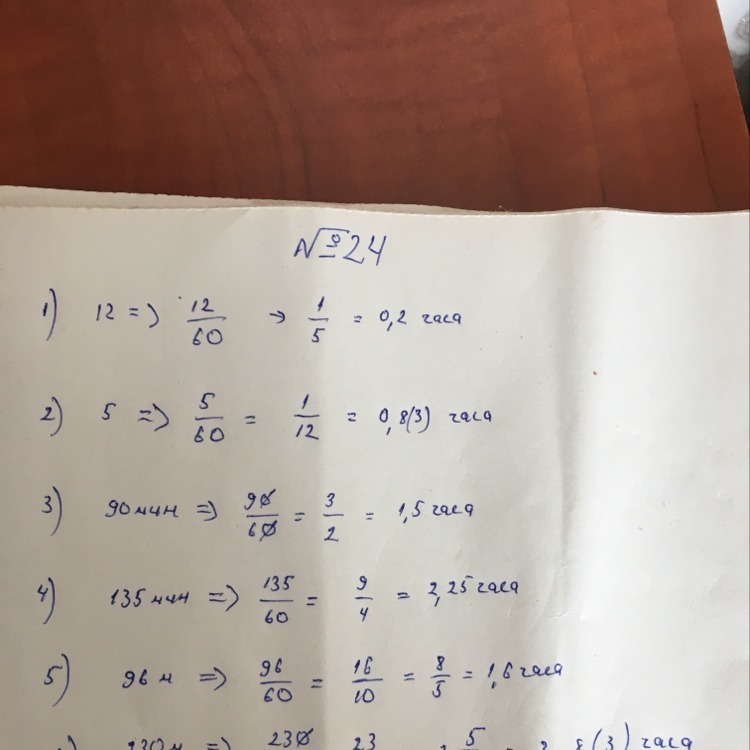 № 24
1) 12 => 12/60 → 1/5 = 0,2 часа
2) 5 => 5/60 = 1/12 = 0,8(3) часа
3) 90 мин => 90/60 = 3/2 = 1,5 часа
4) 135 мин => 135/60 = 9/4 = 2,25 часа
5) 96 м => 96/60 = 16/10 = 8/5 = 1,6 часа
230 м => 230 23 5 = 8(3) часа